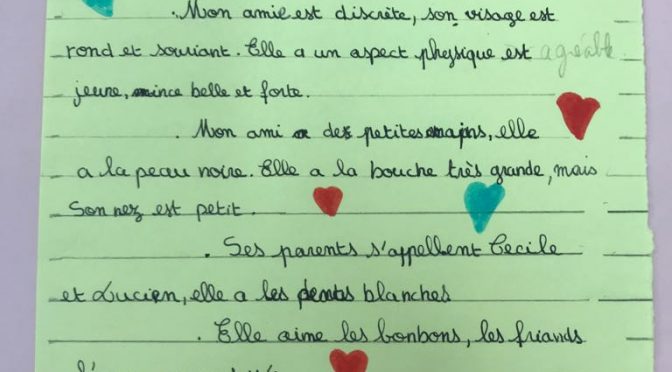 . Mon amie est discrète, son visage est
rond et souriant. Elle a un aspect physique est agréable
jeune, mince belle et forte.
. Mon ami a des petites mains, elle
a la peau noire. Elle a la bouche très grande, mais
son nez est petit.
. Ses parents s'appellent Cecile
et Lucien, elle a les dents blanches
. Elle aime les bonbons, les friands